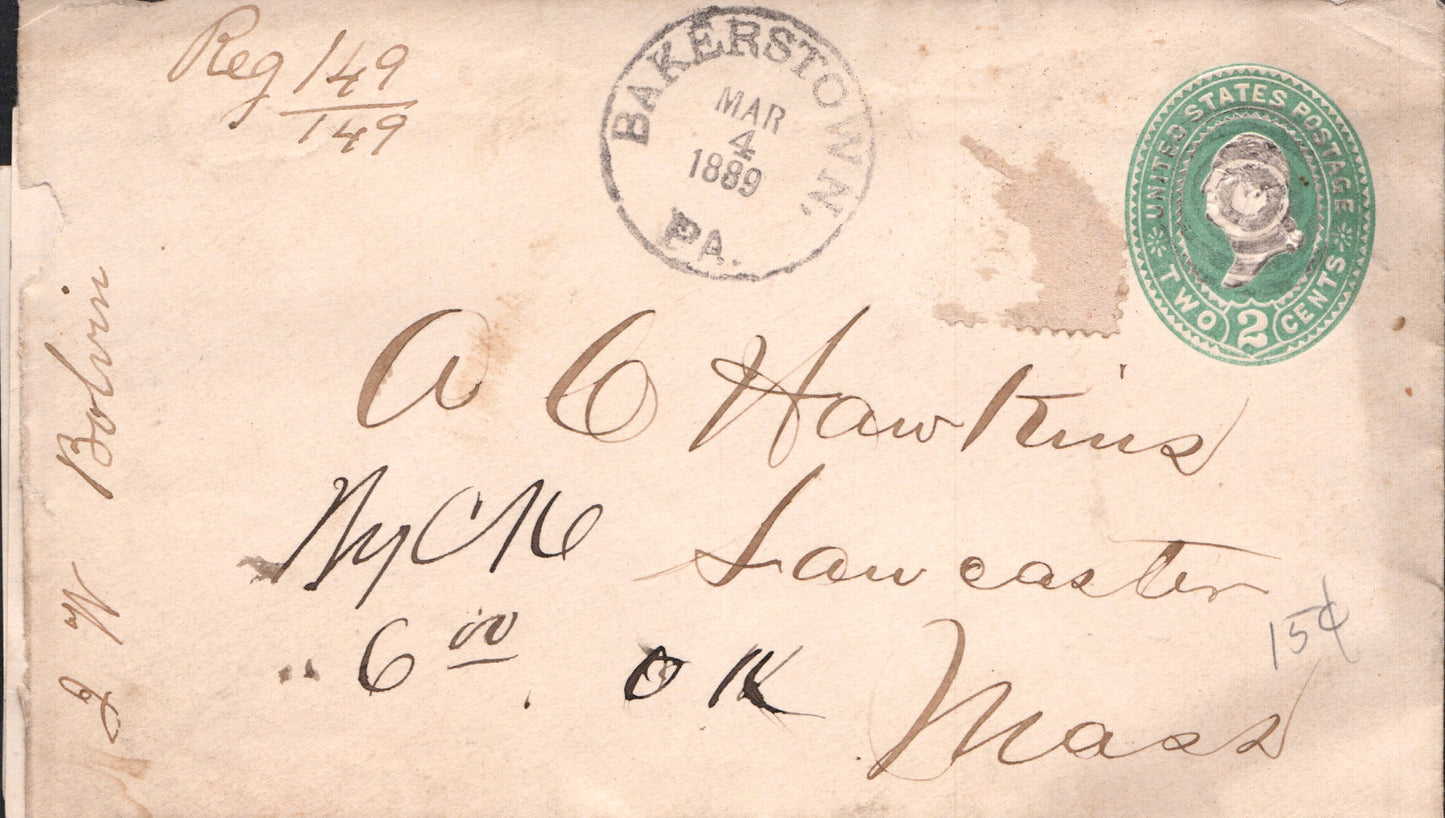 Reg 149
149
BAKERSTOWN,
MAR
4
1889
PA.
UNITED STATES POSTAGE
TWO 2 CENTS
A C Hawkins
Lancaster
6 00 OK
Mass
15¢
W Bolvin